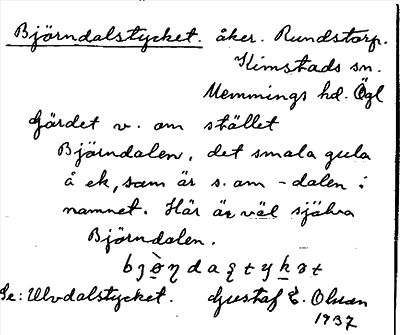 Björndalstycket. åker. Rundstorp.
Kimstads sn.
Memmings hd. Ögl
Gärdet v. om stället
Björndalen, det smala gula
å ek, som är s. om -dalen i
namnet. Här är väl själva
Björndalen.
bjǫ̀ŋdaʂtykət
Se: Ulvdalstycket. Gustaf E. Olson
1937